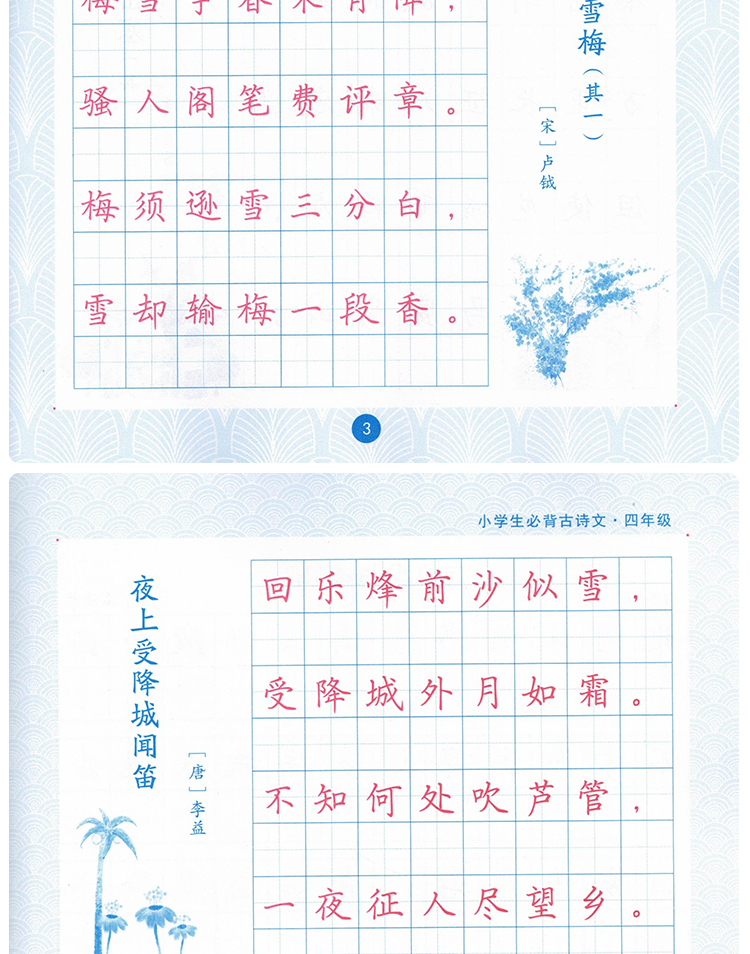 梅雪争春未肯降，
骚人阁笔费评章。
梅须逊雪三分白，
雪却输梅一段香。
雪梅（其一）
［宋］卢钺
3
小学生必背古诗文·四年级
夜上受降城闻笛
［唐］李益
回乐烽前沙似雪，
受降城外月如霜。
不知何处吹芦管，
一夜征人尽望乡。